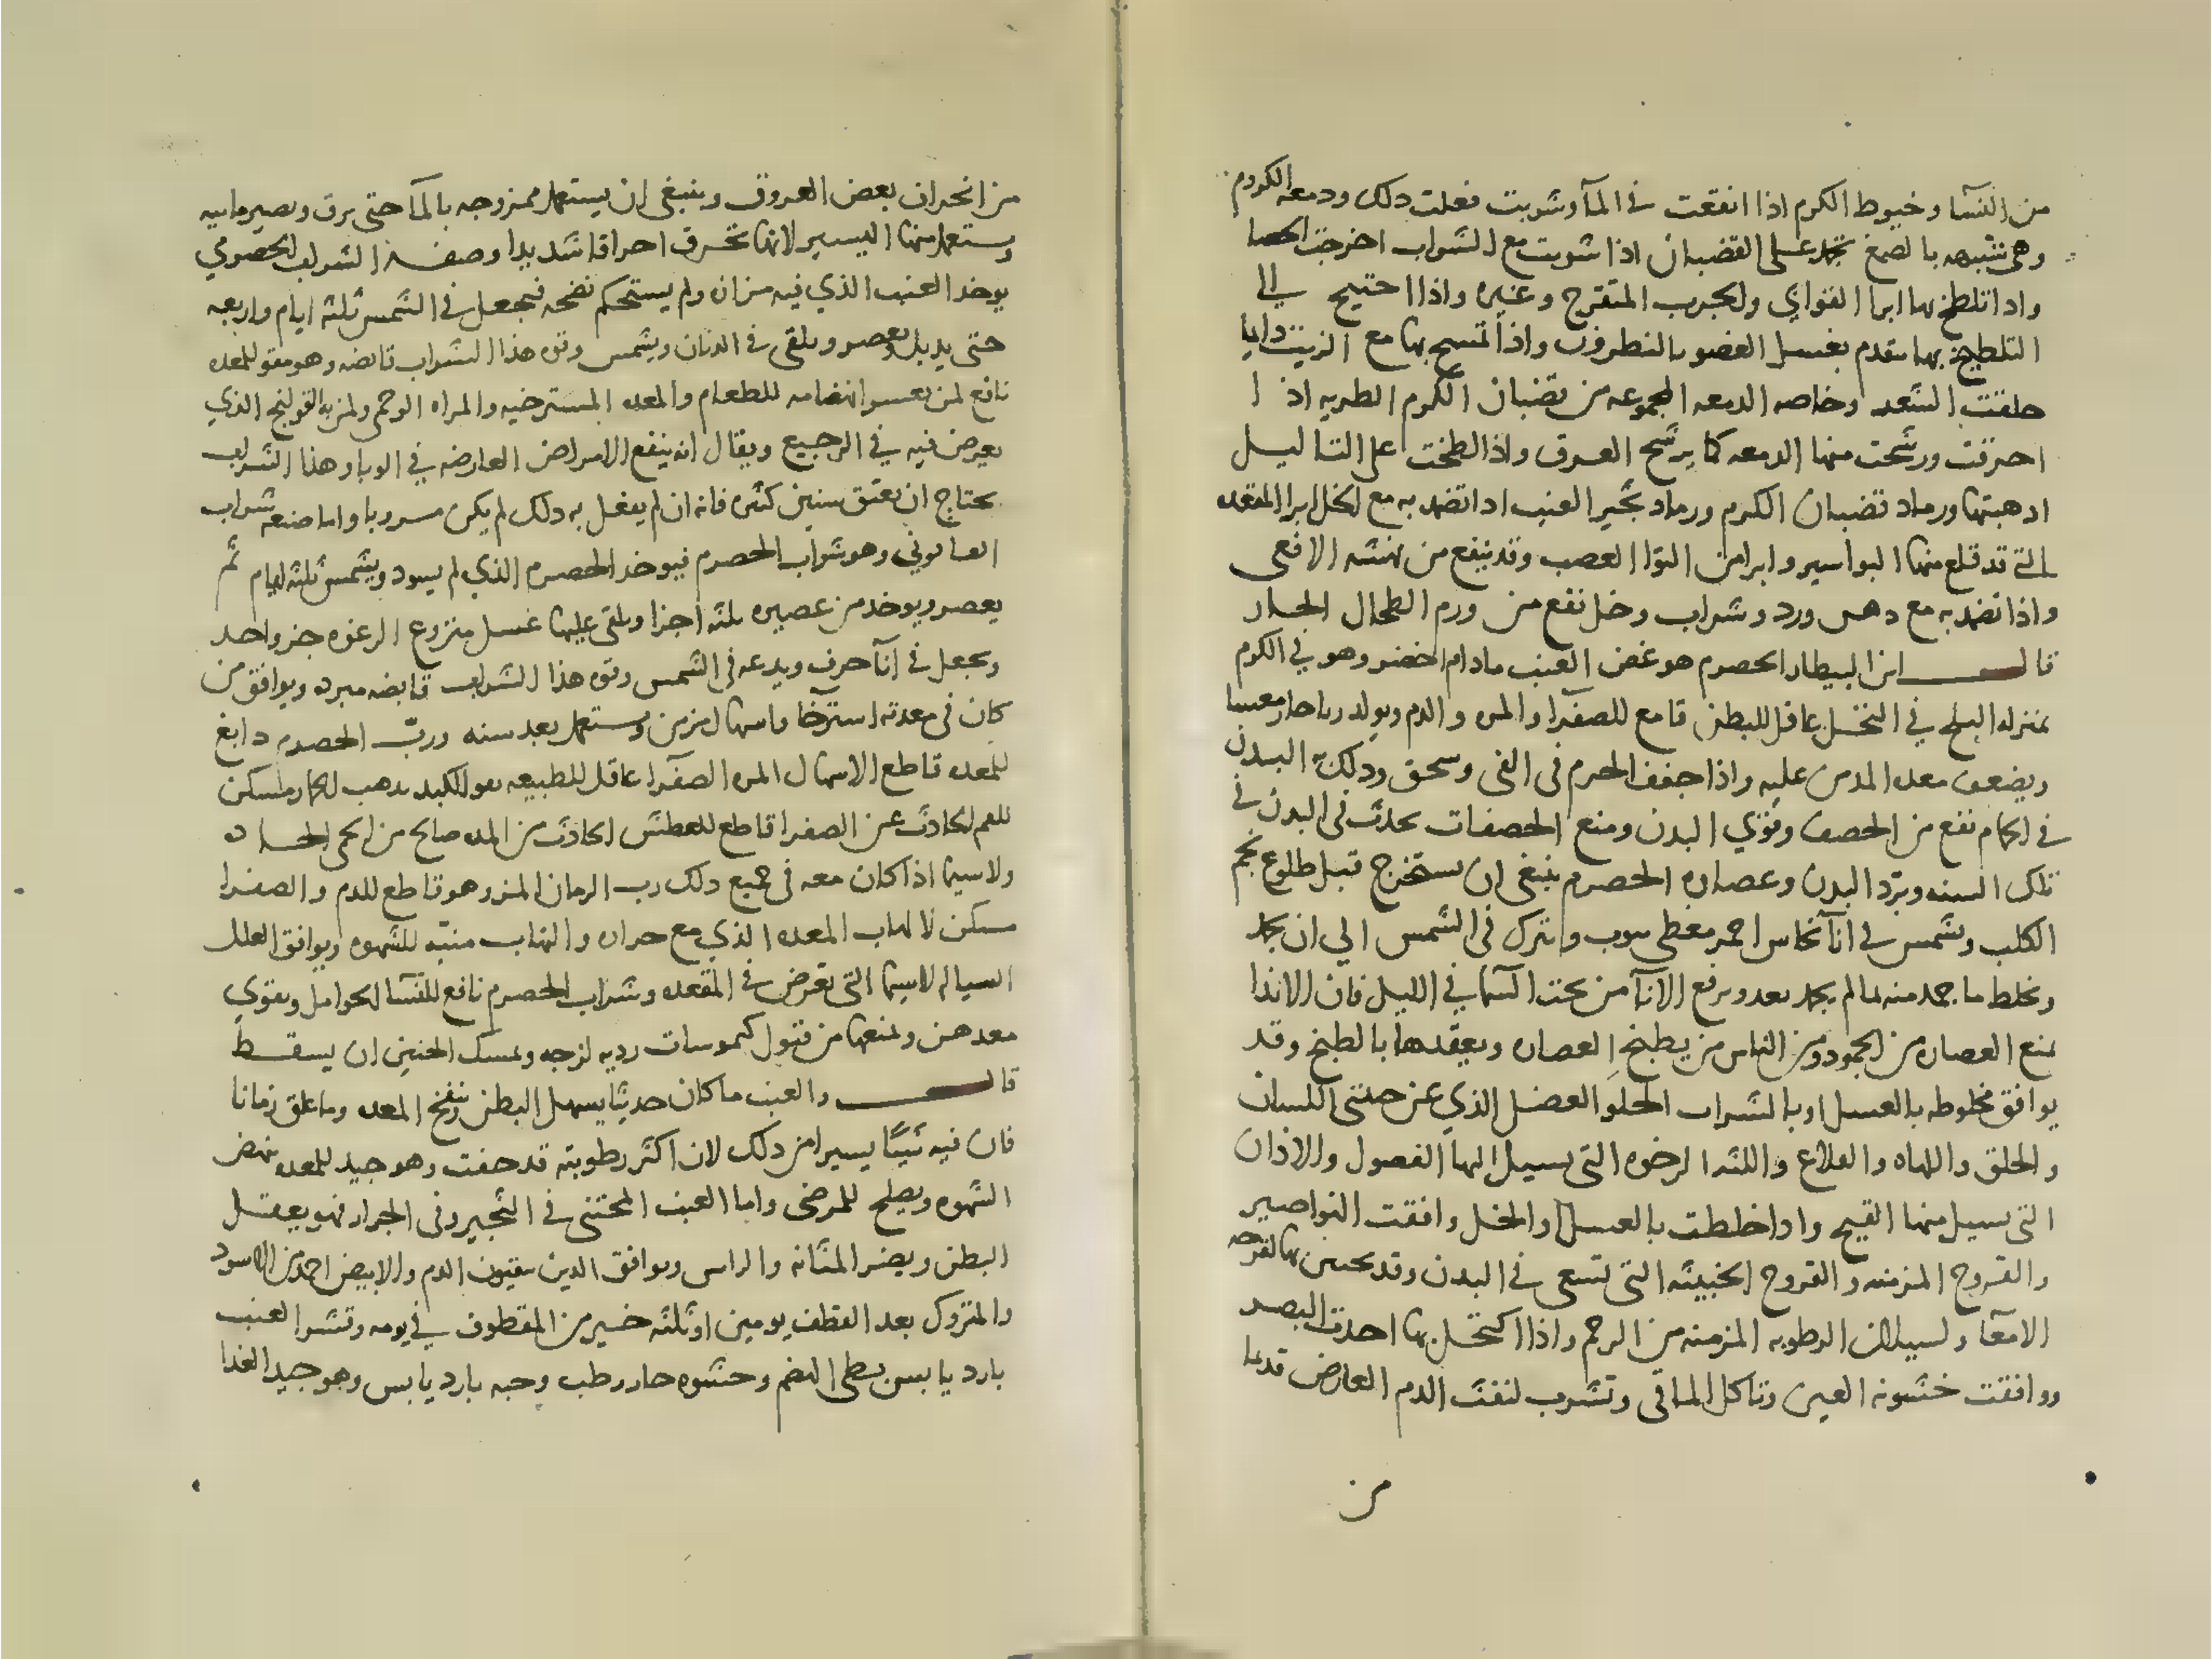 من النسآ وخيوط الكرم اذا انقعت في المآ وشربت فعلت دلك ودمعه الكروم
وهي شبيهه بالصمغ تجمد على القضبان اذا شربت مع الشراب اخرجت الحصا
واداتلطخ بها ابرا القوابي والجرب المتقرح وغيره واذا احتيج الي
التلطيخ بها يتقدم بغسل العضو بالنطرون واذا تمسح بها مع الزيت دايما
حلقت الشعر وخاصه الدمعه المجموعه من قضبان الكرم الطريه اذا
احرقت ورشحت منها الدمعه كما يرشح العرق واذا لطخت على الثاليل
ادهبتها ورماد قضبان الكرم ورماد ثجير العنب اداتضمد به مع الخل ابرا المقعده
التي قد قلع منها البواسير وابرا من التوا العصب وقد ينفع من نهشه الافعى
واذا تضمد به مع دهن ورد وشراب وخل نفع من ورم الطحال الحار
قال ابن البيطار الحصرم هو غض العنب مادام اخضر وهو في الكرم
بمنزله البلح في النخل عاقل للبطن قامع للصفرا والمره والدم ويولد رياحا ومغسا
ويضعف معده المدمن عليه واذا جفف الحصرم في الفى وسحق ودلك به البدن
في الحمام نفع من الحصف وقوي البدن ومنع الحصفات تحدث في البدن في
تلك السنه وبرد البدن وعصاره الحصرم ينبغي ان تستخرج قبل طلوع نجم
الكلب وتشمس في انآ نحاس احمر مغطى بثوب ويترك في الشمس الي ان يجمد
ويخلط ما جمد منه بما لم يجمد بعد ويرفع الانآ من تحت السما في الليل فان الاندا
تمنع العصاره من الجمود ومن الناس من يطبخ العصاره ويعقدها بالطبخ وقد
يوافق مخلوطه بالعسل او بالشراب الحلو العضل الذي عن جنبتي اللسان
والحلق واللهاه والقلاع واللثه الرخوه التي يسيل اليها الفصول والاذان
التي يسيل منها القيح واداخلطت بالعسل والخل وافقت النواصير
والقروح المزمنه والقروح الخبيثه التي تسعى في البدن وقد يحتقن بها لقرحه
الامعآ ولسيلان الرطوبه المزمنه من الرحم واذا اكتحل بها احدت البصر
ووافقت خشونه العين وتاكل الماقي وتشرب لنفث الدم العارض قديما
من
من انخراق بعض العروق وينبغي ان يستعمل ممزوجه بالمآ حتى يرق ويصير مايه
ويستعمل منها اليسير لانها تحرق احراقا شديدا وصفه الشراب الحصرمي
يوخد العنب الذي فيه مزازه ولم يستحكم نضجه فيجعل في الشمس ثلثه ايام واربعه
حتى يدبل ويعصر ويلقى في الدنان ويشمس وقوه هذا الشراب قابضه وهو مقو للمعده
نافع لمن يعسر انهضامه للطعام والمعده المسترخيه والمراه الوحمى ولمن به القولنج الذي
يعرض فيه في الرجيع ويقال انه ينفع الامراض العارضه في الوبا وهذا الشراب
يحتاج ان يعتق سنين كثيره فانه ان لم يفعل به دلك لم يكن مسروبا واما صنعه شراب
العالوني وهو شراب الحصرم فيوخد الحصرم الذي لم يسود ويشمس ثلثه ايام ثم
يعصر ويوخد من عصيره ثلثه اجزا ويلقى عليها عسل منزوع الرغوه جزو احد
ويجعل في انآ خزف ويدعه في الشمس وقوه هذا الشراب قابضه مبرده ويوافق من
كان في معدته استرخآ واسهال مزمن ويستعمل بعد سنه وربّ الحصرم دابغ
للمعده قاطع الاسهال المره الصفرا عاقل للطبيعه مقو للكبد يدهب الخمار ومسكن
للغم الحادث عن الصفرا قاطع للعطش الحادث من المده صالح من الحمى الحاده
ولاسيما اذا كان معه في جميع دلك رب الرمان المز وهو قاطع للدم والصفرا
مسكن لالهاب المعده الذي مع حراره والتهاب منبّه للشهوه ويوافق العلل
السياله لاسيما التي تعرض في المقعده وشراب الحصرم نافع للنسآ الحوامل ويقوي
معدهن ويمنعها من قبول كيموسات رديه لزجه ويمسك الجنين ان يسقط
قال والعنب ما كان حديثا يسهل البطن وينفخ المعده وما علق زمانا
فان فيه شيئا يسيرا من دلك لان اكثر رطوبته قد جفت وهو جيد للمعده ينهض
الشهوه ويصلح للمرضى واما العنب المختبى في الثجير وفي الجرار فهو يعقل
البطن ويضر المثانه والراس ويوافق الدين يتقيون الدم والابيض احمد من الاسود
والمتروك بعد القطف يومين اوثلثه خير من المقطوف في يومه وقشر العنب
بارد يابس بطى الهضم وحشوه حار رطب وحبه بارد يابس وهو جيد الغذا